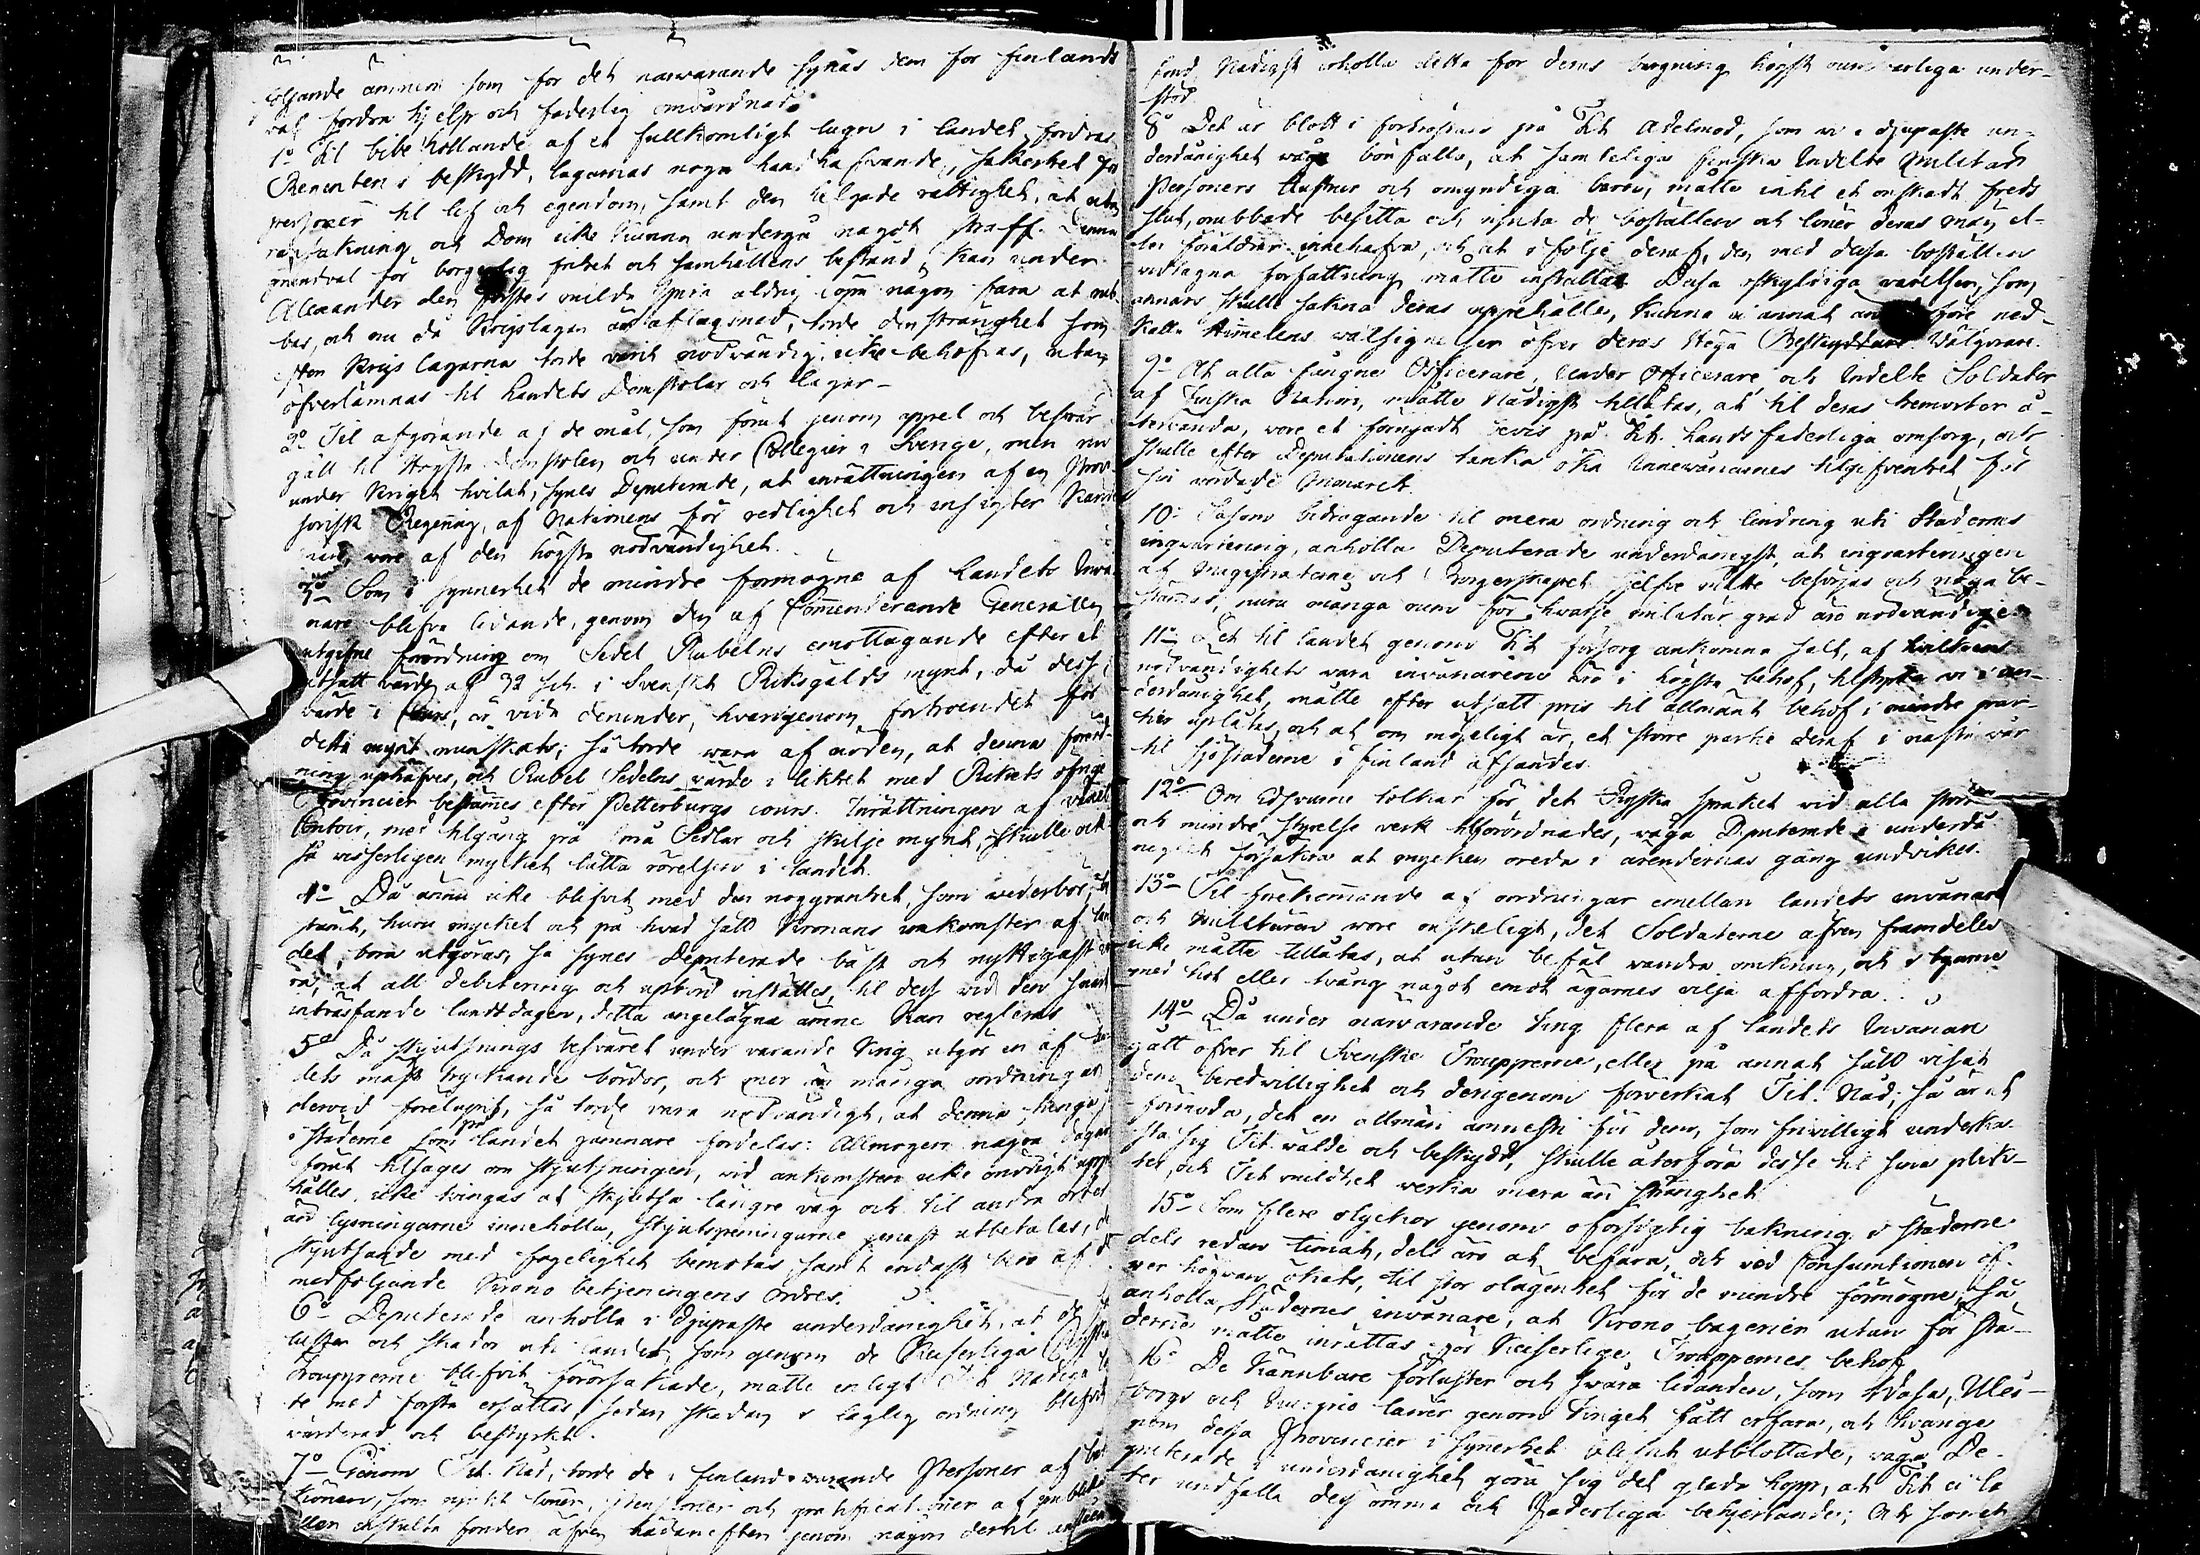 följande ämnen som för det närwarande synas dem for finlands
väl fordra hjelp och faderlig omvårdnad.
1o Til bibehållande af et fullkomligt lugn i landet fordras
Regentens beskydd, lagarnas noga handhafvande, säkerhet för
personer til lif och egendom, samt den helgade rättighet, at utan
ransakning och Dom icke kunna undergå någöt straff. Denna
grundval för borgerlig frihet och samhällens bestånd, kan under
Alexander den förstes milda spira aldrig löpa någon fara at rub-
bas, och om då Krigslagen är aflägsnad, torde den stränghet som
Krigs lagarna torde varit nödvändig, icke behöfvas, utan
öfverlämnas til Landets Domstolar och lagar-
2o Til afgörande af de mål, som förut genom appel och besvär
gått til Högsta Domstolen och under Collegier i Sverge, men nu
under Kriget hvilat, synes Deputerade, at inrättningen af en provi-
sorisk Regering, af Nationens för redlighet och insigter kände
män, wore af den högsta nödvändighet.
3o Som i synnerhet de mindre förmögne af Landets Inwå-
nare blifva lidande, genom den af Commenderande Generalen
utgifne förordning om Sedel Rubelns emottagande efter et
utsatt värde af 32 sch. i Svenskt Riksgälds mynt, då dess
värde i Cours, är vida derunder, hvarigenom förtroendet för
detta mynt munskats; så torde wara af nöden, at denna förord-
ning uphäfves, och Rubel Sedelns värde i likhet med Rikets öfrige
Provincier bestämmes efter Petterburgs cours. Inrättningen af växel
Contoir, med tilgång på små Sedlar och skilje mynt, skulle ock-
så visserligen mycket lätta rörelsen i landet.
4o Då ännu icke blifvit med den noggranhet, som wederbör, be-
stämt, huru mycket och på hvad sätt Kronans inkomster af lan-
det, böra utgöras, så synes Deputerade bäst och nyttigast wa-
ra, at all debitering och upbörd inställes, til dess vid den snart
inträffande landtdagen, detta angelägna ämne kan regleras
5o Då skjutsnings besväret under warande Krig utgör en af lan-
dets mäst tryckande bördor, och mer än många oordningar
dervid förelupit, så torde vara nödvändigt, at denna tunga
i städerne som på landet jämnare fördelas: Allmogen några dagar
förut tilsäges om skjutsningen, wid ankomsten icke onödigt uppe-
hålles, icke tvingas at skjutsa längre väg och til andra orter
än lysningarne innehålla, skjutspenningarne genast utbetalas, de
skjutsande med fogelighet bemötas samt endast bero af d
medföljande Krono betjeningens ordres.
6o Deputerade anhålla i djupaste underdånighet, at de för-
luster och skador uti landet, som genom de Keiserliga Ryska
Troupperne blifvit förorsakade, måtte enligt Tit Nådiga löf-
te med första ersättas, sedan skadan i laglig ordning blifvit
värderad och bestyrkt.
7o Genom Tit. Nåd, torde de i Finland warande Personer af
som njutit löner, pensioner och gratificationer af publike
eller enskilta fonder äfven hädanefter genom någon dertil anslagen
fond, Nådigst erhålla detta för deras bergning högst oumbärliga under-
stöd.
8o Det är blott i förtröstan på Tit Ädelmod, som vi i djupaste un-
derdånighet wåga bönfalla, at samteliga finska Indelte Militair
Personers Hustrur och omyndiga barn, måtte intil et önskadt freds
slut, orubbade besitta och njuta de boställen och löner deras män el-
ler föräldrar innehafva, och at i följe deraf, den med dessa boställen
vidtagna författning måtte inställas. Dessa oskyldiga varelser, som
annars skulle sakna deras uppehälle, kunna ej annat än böre ned-
kalla Himmelens wälsignelser öfver deras Höga Beskyddare Välgörare.
9o At alla fångne Officerare, Under Officerare och Indelte Soldater
af Finska Nation, måtte Nådigst tillåtas, at til deras hemorter å-
terwända, wore et förnyadt bevis på Tit. Lands faderliga omsorg, och
skulle efter Deputationens tanke öka Innewånarnes tilgifvenhet för
sin vördade Monarch.
10o Såsom bidragande til mera ordning och lindring uti Städernes
inqvartering, anhålla Deputerade underdånigst, at inqvarteringen
af Magistraterne och Borgerskapet sjelfve måtte besörjas och noga be-
stämmas, huru många rum för hvarje militär grad äro nödvändige.
11o Det til landet genom Tit försorg ankomna salt, af hvilken
nödvändighets vara invånarene äro i högsta behof, tilstyrka vi i un-
derdånighet, måtte efter utsatt pris til allmänt behof i mindre par-
tier uplåtas, och at om möjeligt är, et större partie deraf i nästa vår
til Sjöstäderne i finland afsändes.
12o Om Edsvurne tolkar för det Ryska språket vid alla större
och mindre styrelse verk tilförordnades, våga Deputerade i underdå-
nighet försäkra at mycken oreda i ärendernas gång undvikes.
13o Til förekommande af oordningar emellan landets invånare
och militären wore önskeligt, det Soldaterne äfven framdeles
icke måtte tillåtas, at utan befäl wandra omkring, och i byarne
med hot eller tvång något emot ägarnes vilja affordra.
14o Då under närwarande krig flera af landets Invånare
gått öfver til Svenska Troupperne, eller på annat sätt visat
dem beredvillighet och derigenom förverkat Tit. Nåd; så är at
förmoda, det en allmän amnesti för dem, som frivilligt underka-
sta sig Tit. välde och beskydd, skulle återföra desse til sina plikt-
ter, och Tit mildhet verka mera än stränghet.
15o Som flere olyckor genom oförsigtig bakning i städerne
dels redan timat, dels äro at befara, och ved Consumtionen öf-
ver höfvan ökats, til stor olägenhet för de mindre förmögne, så
anhålla Städernes invånare, at Krono bagerien utan för Stä-
derne måtte inrättas för Keiserlige Trouppernes behof
16o De kännbare förluster och svåra lidanden, som Wasa, Uleå-
borgs och Kuopio länér genom kriget fått erfara, och hvarige-
nom dessa Provincier i synnerhet blifvit utblottade, våga De-
puterade i underdånighet göra sig det glada hopp, at Tit ei lä-
ter undfalla dess ömma och Faderliga behjertande; Och som et